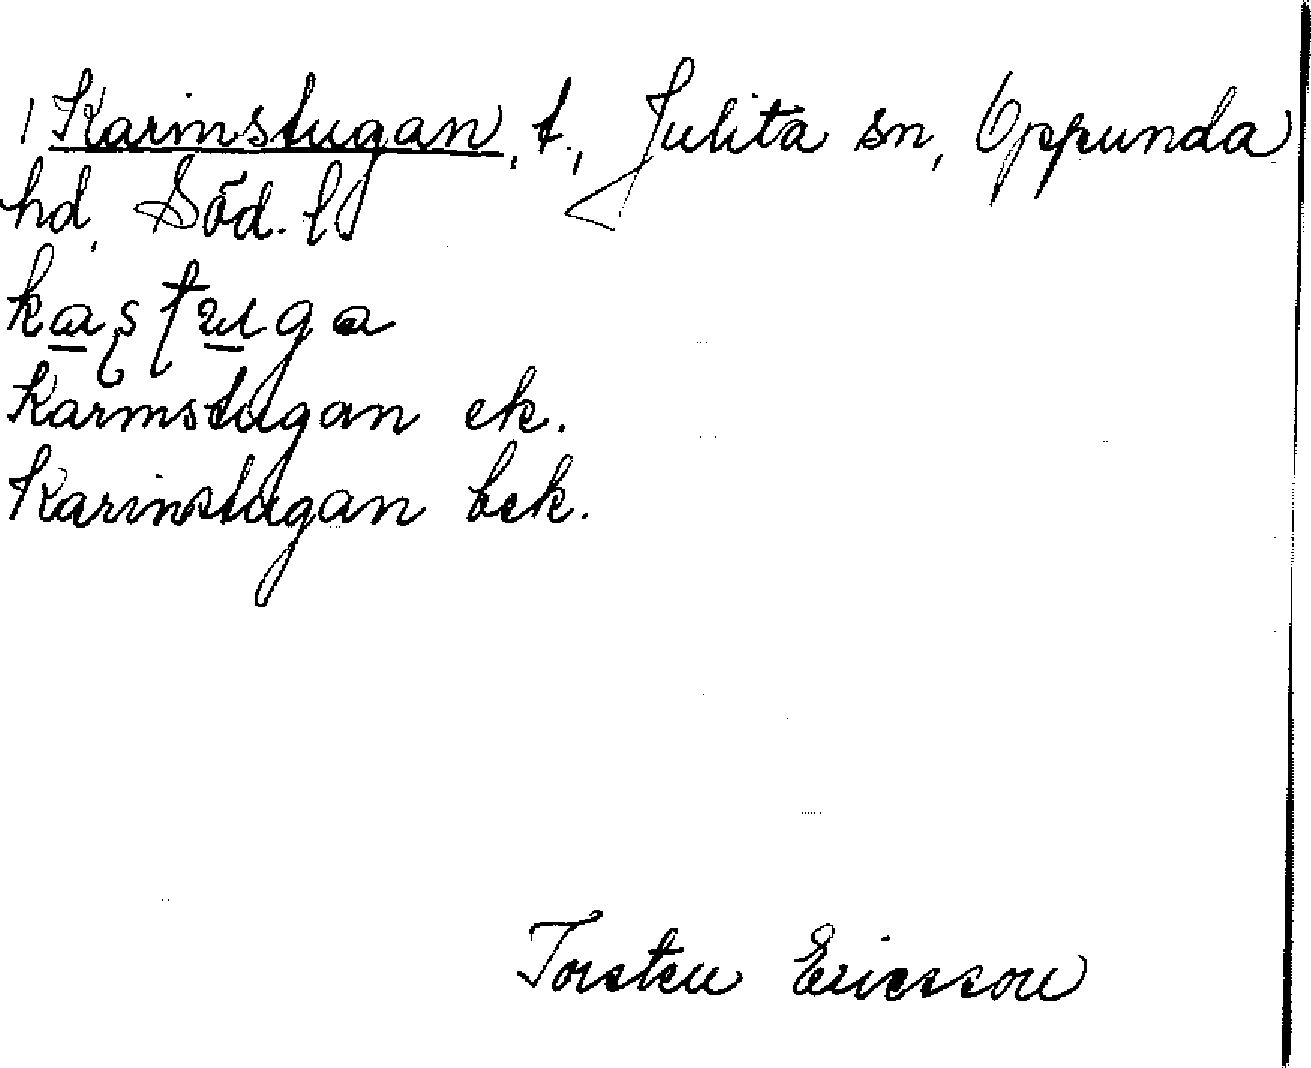 1 Karinstugan, t., Julita sn, Oppunda
hd, Söd. l.
Karmstugan ek.
Karinstugan bek.
Torsten Ericsson